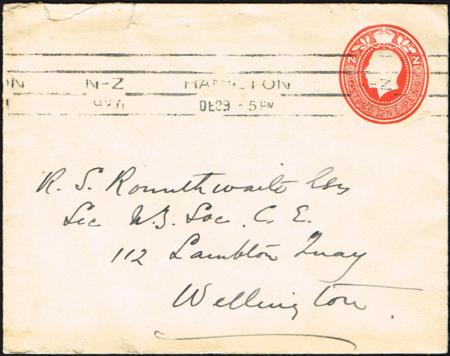 ON N-Z HAMILTON
DE 29 - 5 PM
R. S. Rounthwaite Esq
Sec N.Z. Soc. C. E.
112 Lambton Quay
Wellington.